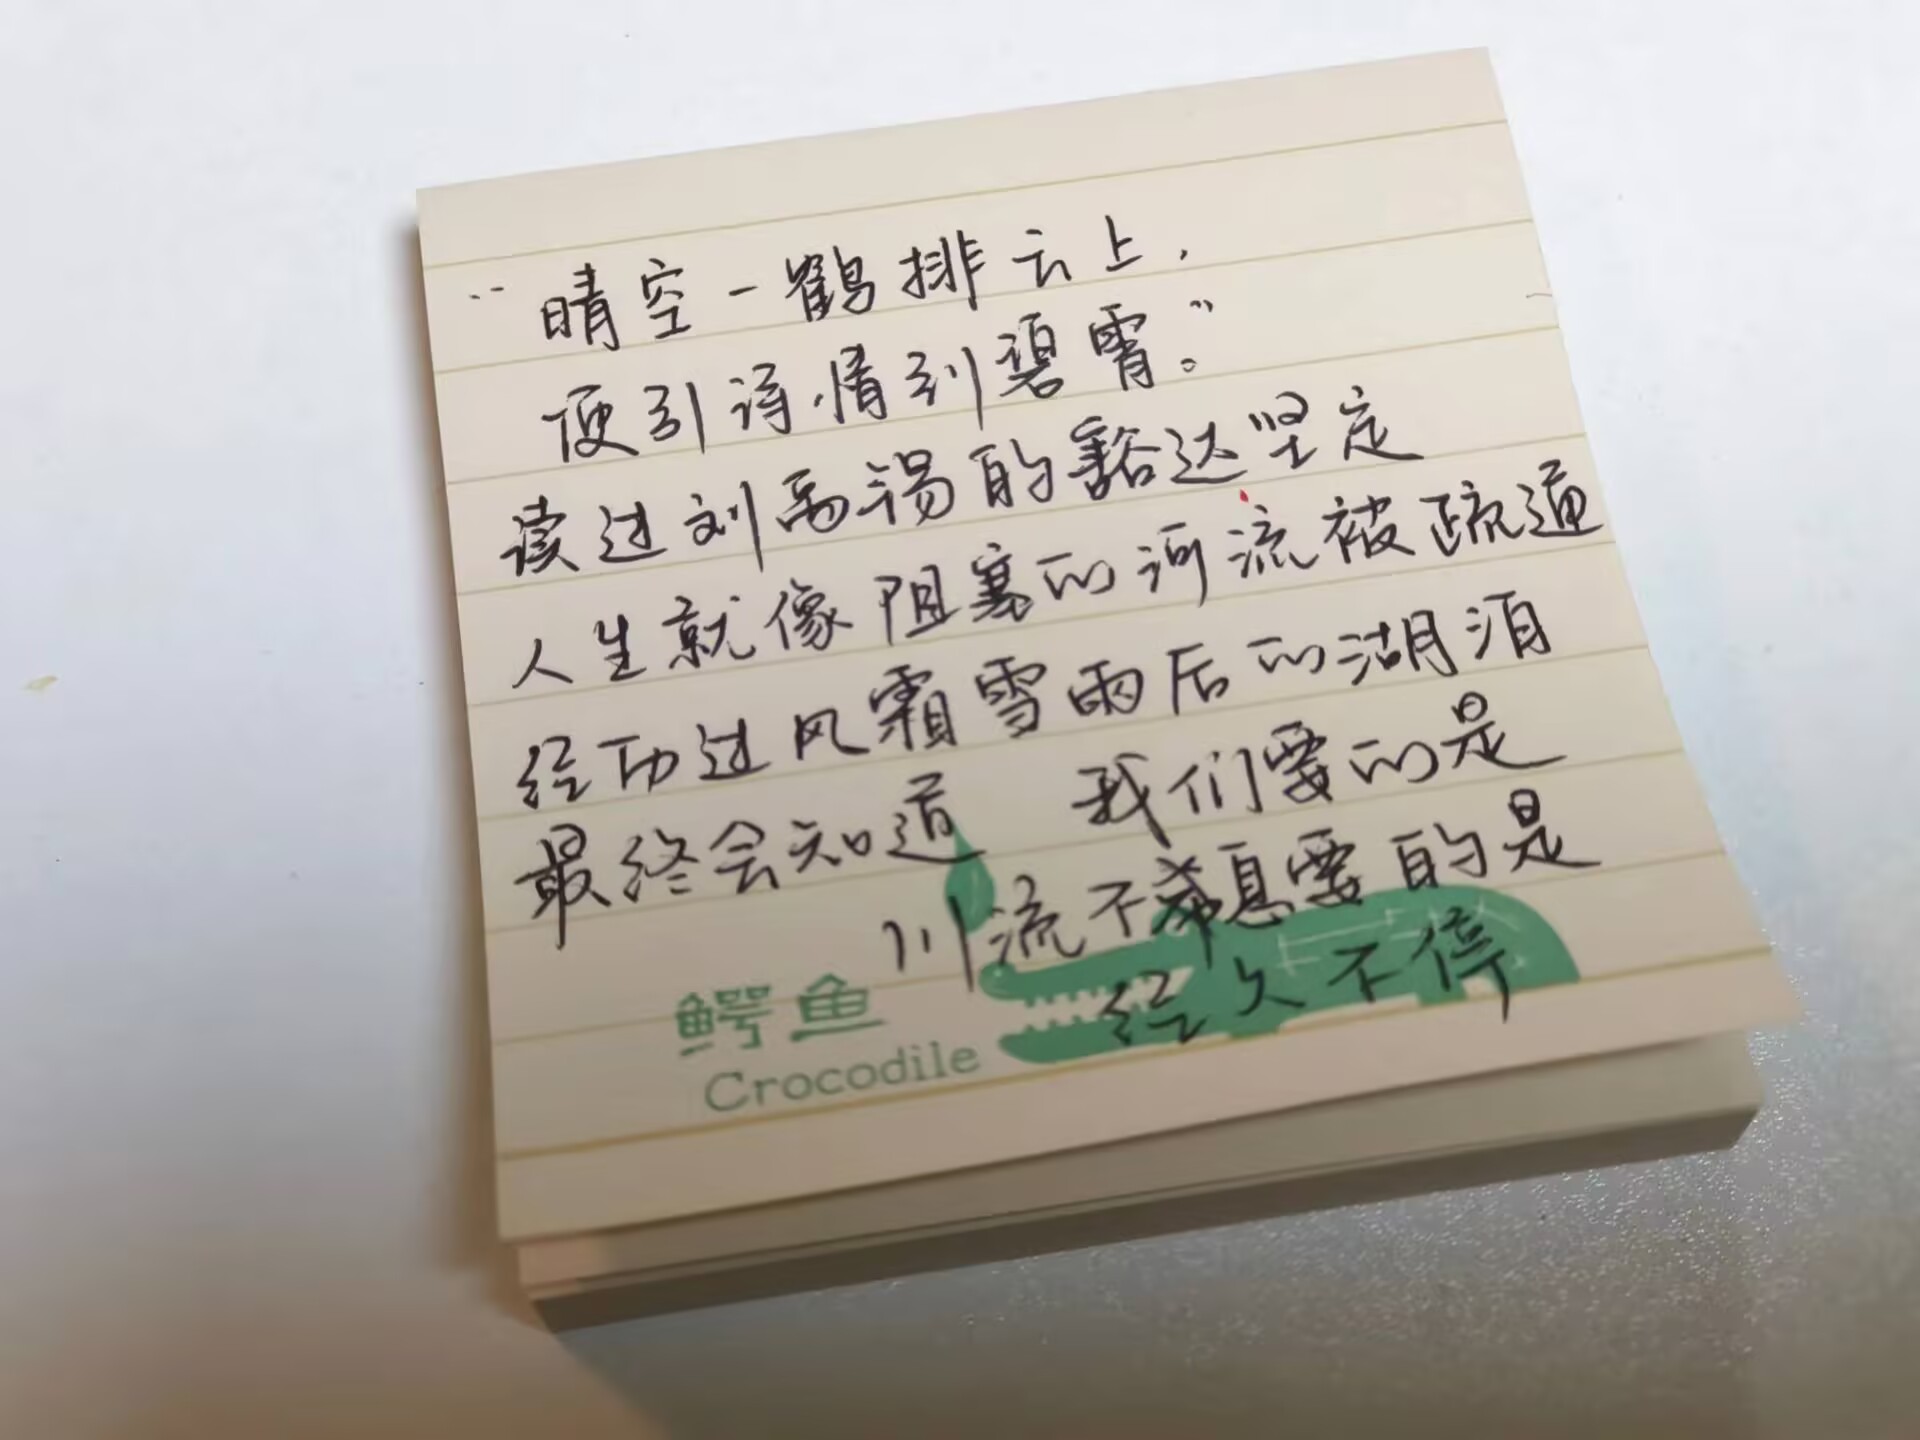 “晴空一鹤排云上，
便引诗情到碧霄。”
读过刘禹锡的豁达坚定
人生就像阻塞的河流被疏通
经历过风霜雪雨后的湖泊
最终会知道 我们要的是
川流不息要的是
经久不停
鳄鱼
Crocodile